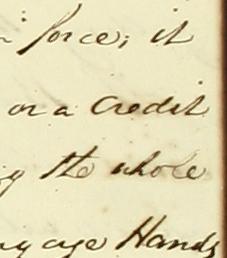 force; it
or a Credit
the whole
Hands